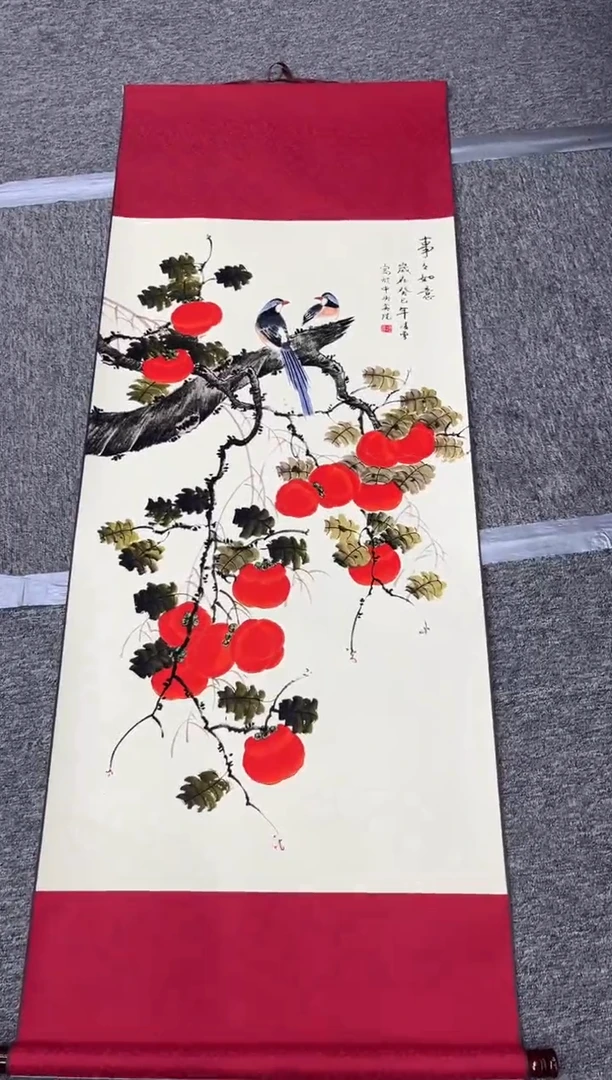 事々如意
歲在癸巳年清雪
寫於中南海